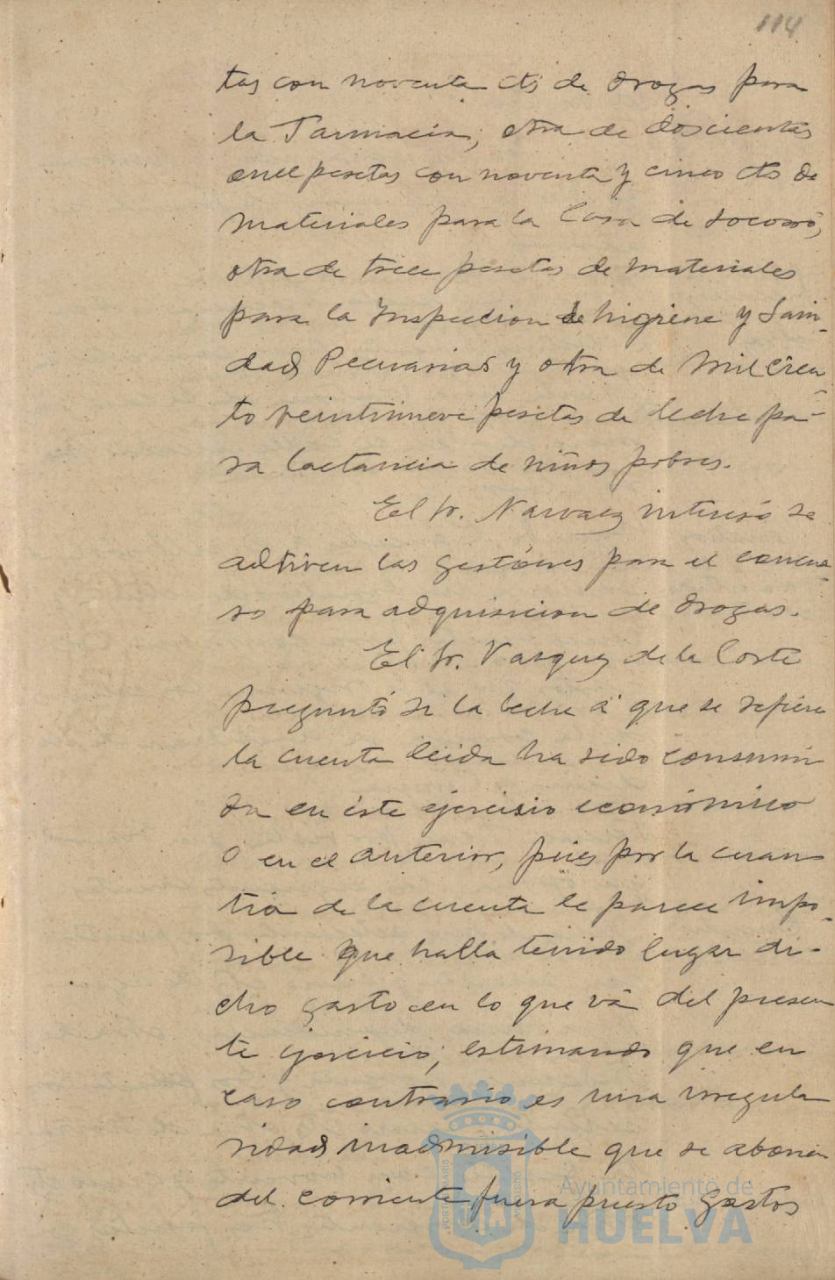 114
tas con noventa cts de drogas para
la Farmacia, otra de doscientas
once pesetas con noventa y cinco cts de
materiales para la Casa de Socorro,
otra de trece pesetas de materiales
para la Inspeccion de higiene y Sani-
dad Pecuarias y otra de mil cien-
to veintinueve pesetas de leche pa-
ra lactancia de niños pobres.
El Sr. Narvaez interesó se
activen las gestiónes para el concur-
so para adquisicion de drogas.
El Sr. Vazquez de la Corte
preguntó si la leche á que se refiere
la cuenta leida ha sido consumi
da en éste ejercisio económico
o en el anterior, pues por la cuan
tia de la cuenta le parece impo-
sible que halla tenido lugar di-
cho gasto en lo que vá del presen
te ejercicio, estimando que en
caso contrario es una irregula
ridad inadmisible que se abonen
del corriente presupuesto gastos
Ayuntamiento de
HUELVA